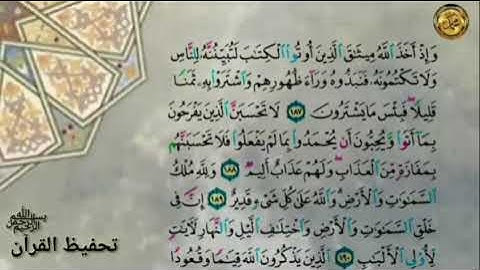 وَإِذْ أَخَذَ ٱللَّهُ مِيثَٰقَ ٱلَّذِينَ أُوتُوا۟ ٱلْكِتَٰبَ لَتُبَيِّنُنَّهُۥ لِلنَّاسِ
وَلَا تَكْتُمُونَهُۥ فَنَبَذُوهُ وَرَآءَ ظُهُورِهِمْ وَٱشْتَرَوْا۟ بِهِۦ ثَمَنًا
قَلِيلًا ۖ فَبِئْسَ مَا يَشْتَرُونَ ١٨٧ لَا تَحْسَبَنَّ ٱلَّذِينَ يَفْرَحُونَ
بِمَآ أَتَوا۟ وَّيُحِبُّونَ أَن يُحْمَدُوا۟ بِمَا لَمْ يَفْعَلُوا۟ فَلَا تَحْسَبَنَّهُم
بِمَفَازَةٍ مِّنَ ٱلْعَذَابِ ۖ وَلَهُمْ عَذَابٌ أَلِيمٌ ١٨٨ وَلِلَّهِ مُلْكُ
ٱلسَّمَٰوَٰتِ وَٱلْأَرْضِ ۗ وَٱللَّهُ عَلَىٰ كُلِّ شَىْءٍ قَدِيرٌ ١٨٩ إِنَّ فِى
خَلْقِ ٱلسَّمَٰوَٰتِ وَٱلْأَرْضِ وَٱخْتِلَٰفِ ٱلَّيْلِ وَٱلنَّهَارِ لَءَايَٰتٍ
لِّأُو۟لِى ٱلْأَلْبَٰبِ ١٩٠ ٱلَّذِينَ يَذْكُرُونَ ٱللَّهَ قِيَٰمًا وَقُعُودًا
بسم الله الرحمن الرحيم
تحفيظ القرآن